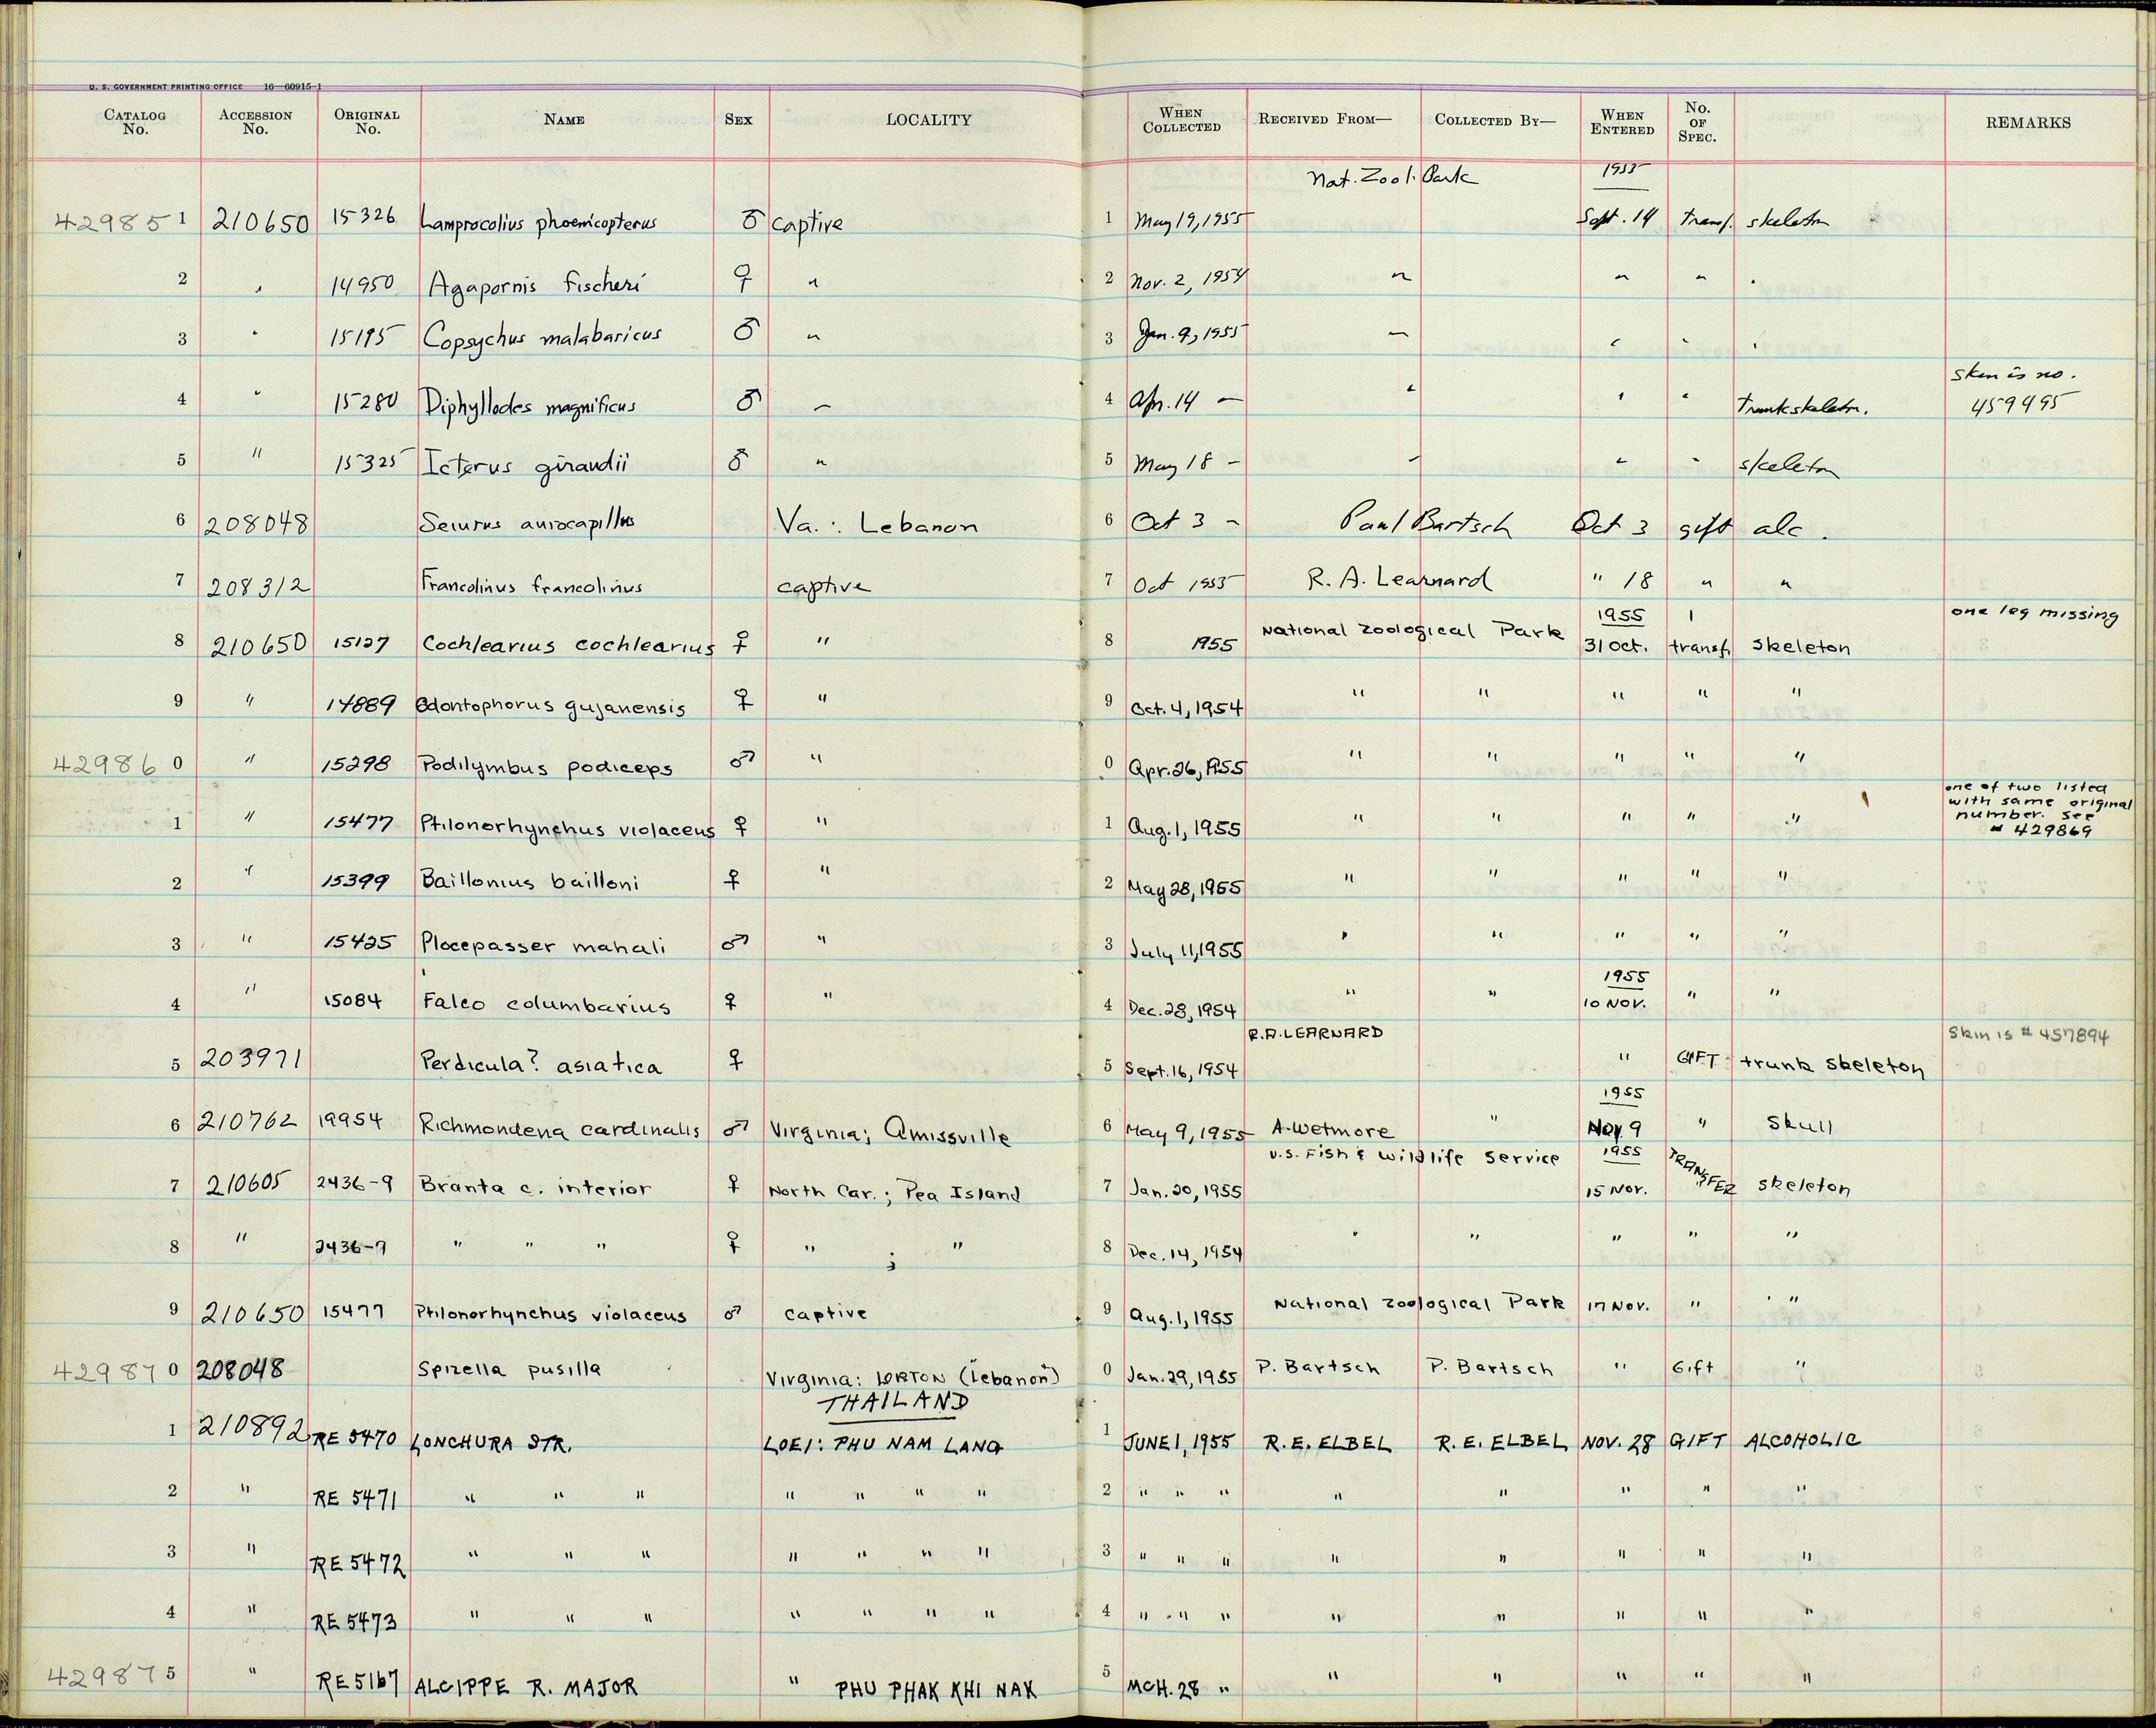 U. S. GOVERNMENT PRINTING OFFICE 16—60915-1
CATALOG No. ACCESSION No. ORIGINAL No. NAME SEX LOCALITY WHEN COLLECTED RECEIVED FROM— COLLECTED BY— WHEN ENTERED No. OF SPEC. REMARKS
Nat. Zool. Park 1955
429851 210650 15326 Lamprocolius phoenicopterus ♂ captive 1 May 19, 1955 Sept. 14 transf. skeleton
2 " 14950 Agapornis fischeri ♀ " 2 Nov. 2, 1954 " " " "
3 " 15195 Copsychus malabaricus ♂ " 3 Jan. 9, 1955 " " " "
skin is no.
4 " 15280 Diphyllodes magnificus ♂ " 4 Apr. 14 " " " " Trunk skeleton. 459495
5 " 15325 Icterus giraudii ♂ " 5 May 18 " " " " skeleton
6 208048 Seiurus aurocapillus Va.: Lebanon 6 Oct 3 " Paul Bartsch Oct 3 gift alc.
7 208312 Francolinus francolinus captive 7 Oct 1955 R. A. Learnard " 18 " "
1955 1 one leg missing
8 210650 15127 Cochlearius cochlearius ♀ " 8 1955 National Zoological Park 31 Oct. transf. skeleton
9 " 14889 Odontophorus gujanensis ♀ " 9 Oct. 4, 1954 " " " " "
429860 " 15298 Podilymbus podiceps ♂ " 0 Apr. 26, 1955 " " " " "
one of two listed
with same original
number. see
1 " 15477 Ptilonorhynchus violaceus ♀ " 1 Aug. 1, 1955 " " " " " # 429869
2 " 15399 Baillonius bailloni ♀ " 2 May 28, 1955 " " " " "
3 " 15425 Plocepasser mahali ♂ " 3 July 11, 1955 " " " " "
1955
4 " 15084 Falco columbarius ♀ " 4 Dec. 28, 1954 " " 10 Nov. " "
R.A. LEARNARD Skin is # 457894
5 203971 Perdicula? asiatica ♀ 5 Sept. 16, 1954 " GIFT trunk skeleton
1955
6 210762 19954 Richmondena cardinalis ♂ Virginia; Amissville 6 May 9, 1955 A. Wetmore " Nov 9 " Skull
U.S. Fish & Wildlife Service 1955
7 210605 2436-9 Branta c. interior ♀ North Car.; Pea Island 7 Jan. 20, 1955 15 Nov. TRANSFER skeleton
8 " 2436-7 " " " ♀ " ; " 8 Dec. 14, 1954 " " " " "
9 210650 15477 Ptilonorhynchus violaceus ♂ captive 9 Aug. 1, 1955 National Zoological Park 17 Nov. " "
429870 208048 Spizella pusilla Virginia: LORTON ("Lebanon") 0 Jan. 29, 1955 P. Bartsch P. Bartsch " Gift "
THAILAND
1 210892 RE 5470 LONCHURA STR. LOEI: PHU NAM LANG 1 JUNE 1, 1955 R. E. ELBEL R. E. ELBEL NOV. 28 GIFT ALCOHOLIC
2 " RE 5471 " " " " " " " 2 " " " " " " " "
3 " RE 5472 " " " " " " " 3 " " " " " " " "
4 " RE 5473 " " " " " " " 4 " " " " " " " "
429875 " RE 5167 ALCIPPE R. MAJOR " PHU PHAK KHI NAK 5 MCH. 28 " " " " " "